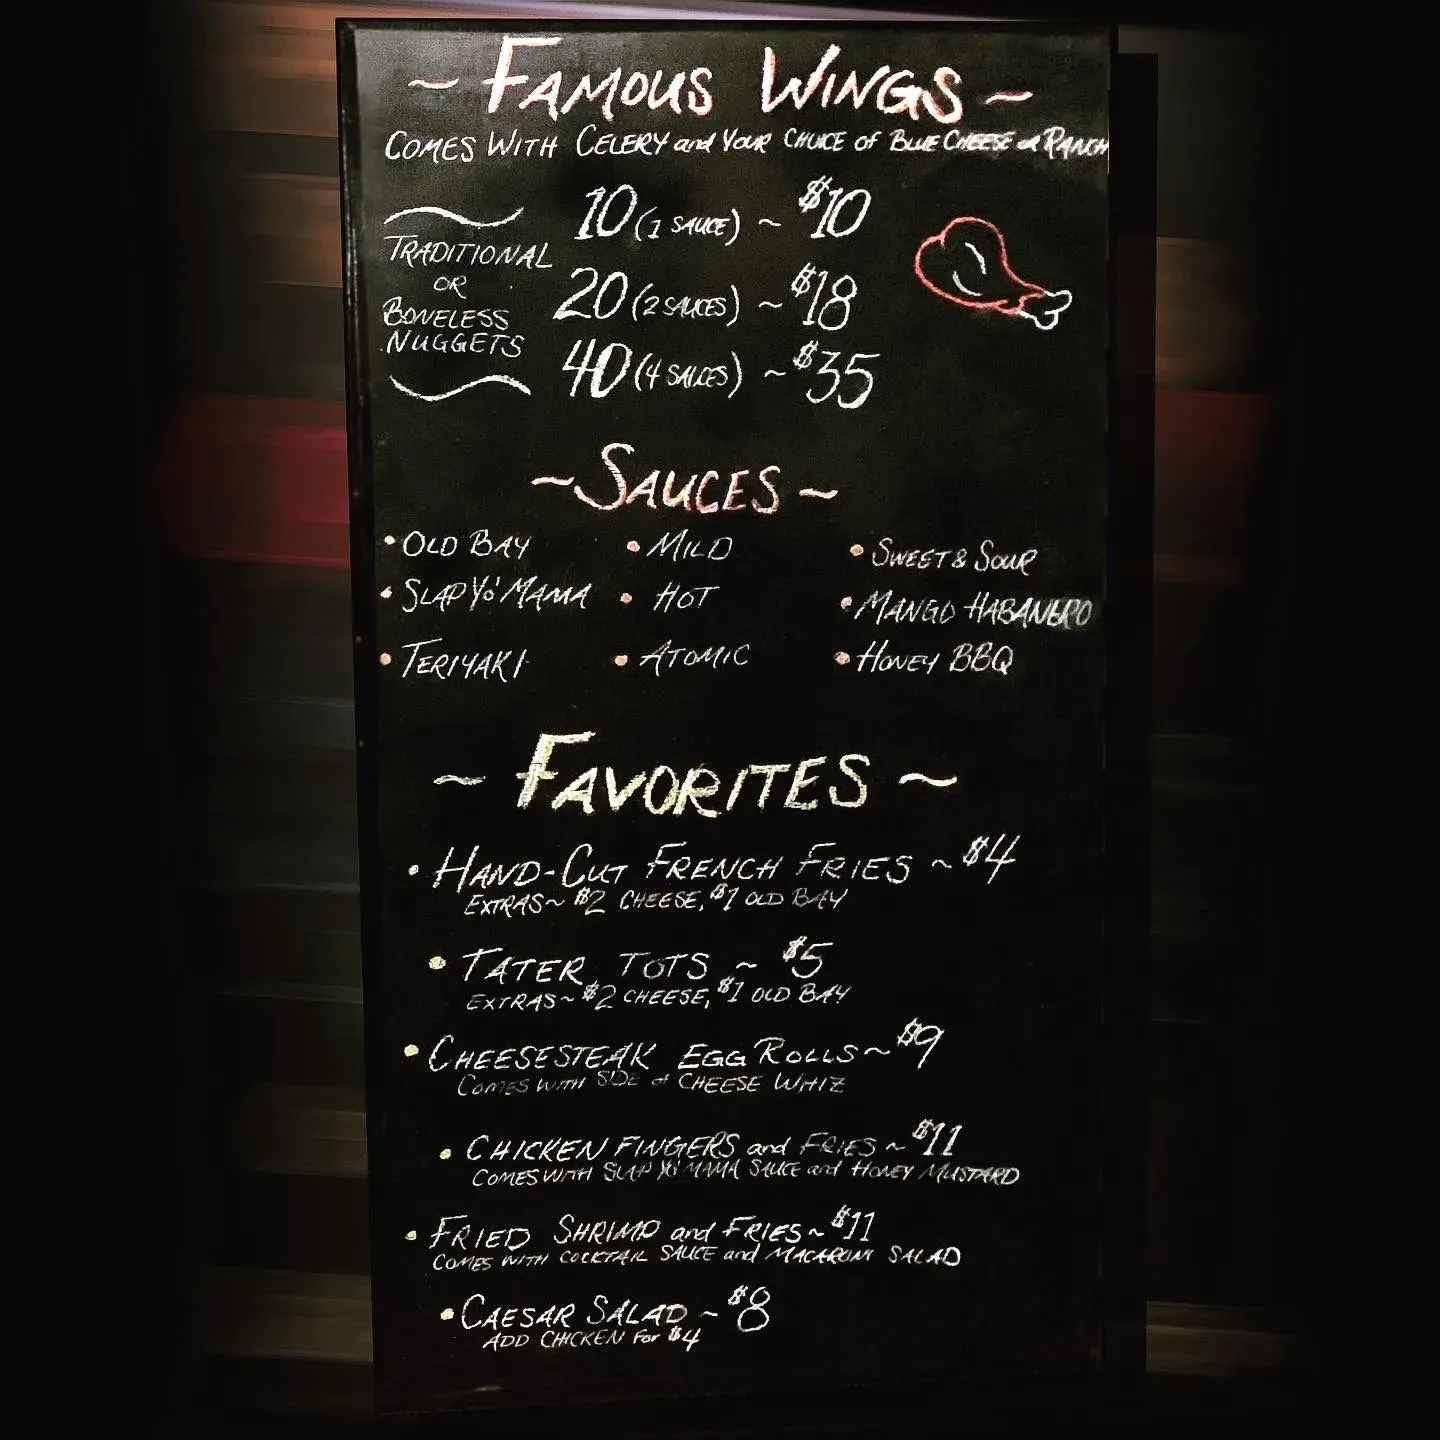 ~ FAMOUS WINGS ~
COMES WITH CELERY and YOUR CHOICE of BLUE CHEESE or RANCH
TRADITIONAL
OR
BONELESS
NUGGETS
10 (1 SAUCE) ~ $10
20 (2 SAUCES) ~ $18
40 (4 SAUCES) ~ $35
~ SAUCES ~
• OLD BAY • MILD • SWEET & SOUR
• SLAP YO' MAMA • HOT • MANGO HABANERO
• TERIYAKI • ATOMIC • HONEY BBQ
~ FAVORITES ~
• HAND-CUT FRENCH FRIES ~ $4
EXTRAS ~ $2 CHEESE, $1 OLD BAY
• TATER TOTS ~ $5
EXTRAS ~ $2 CHEESE, $1 OLD BAY
• CHEESESTEAK EGG ROLLS ~ $9
COMES WITH SIDE of CHEESE WHIZ
• CHICKEN FINGERS and FRIES ~ $11
COMES WITH SLAP YO' MAMA SAUCE and HONEY MUSTARD
• FRIED SHRIMP and FRIES ~ $11
COMES WITH COCKTAIL SAUCE and MACARONI SALAD
• CAESAR SALAD ~ $8
ADD CHICKEN FOR $4